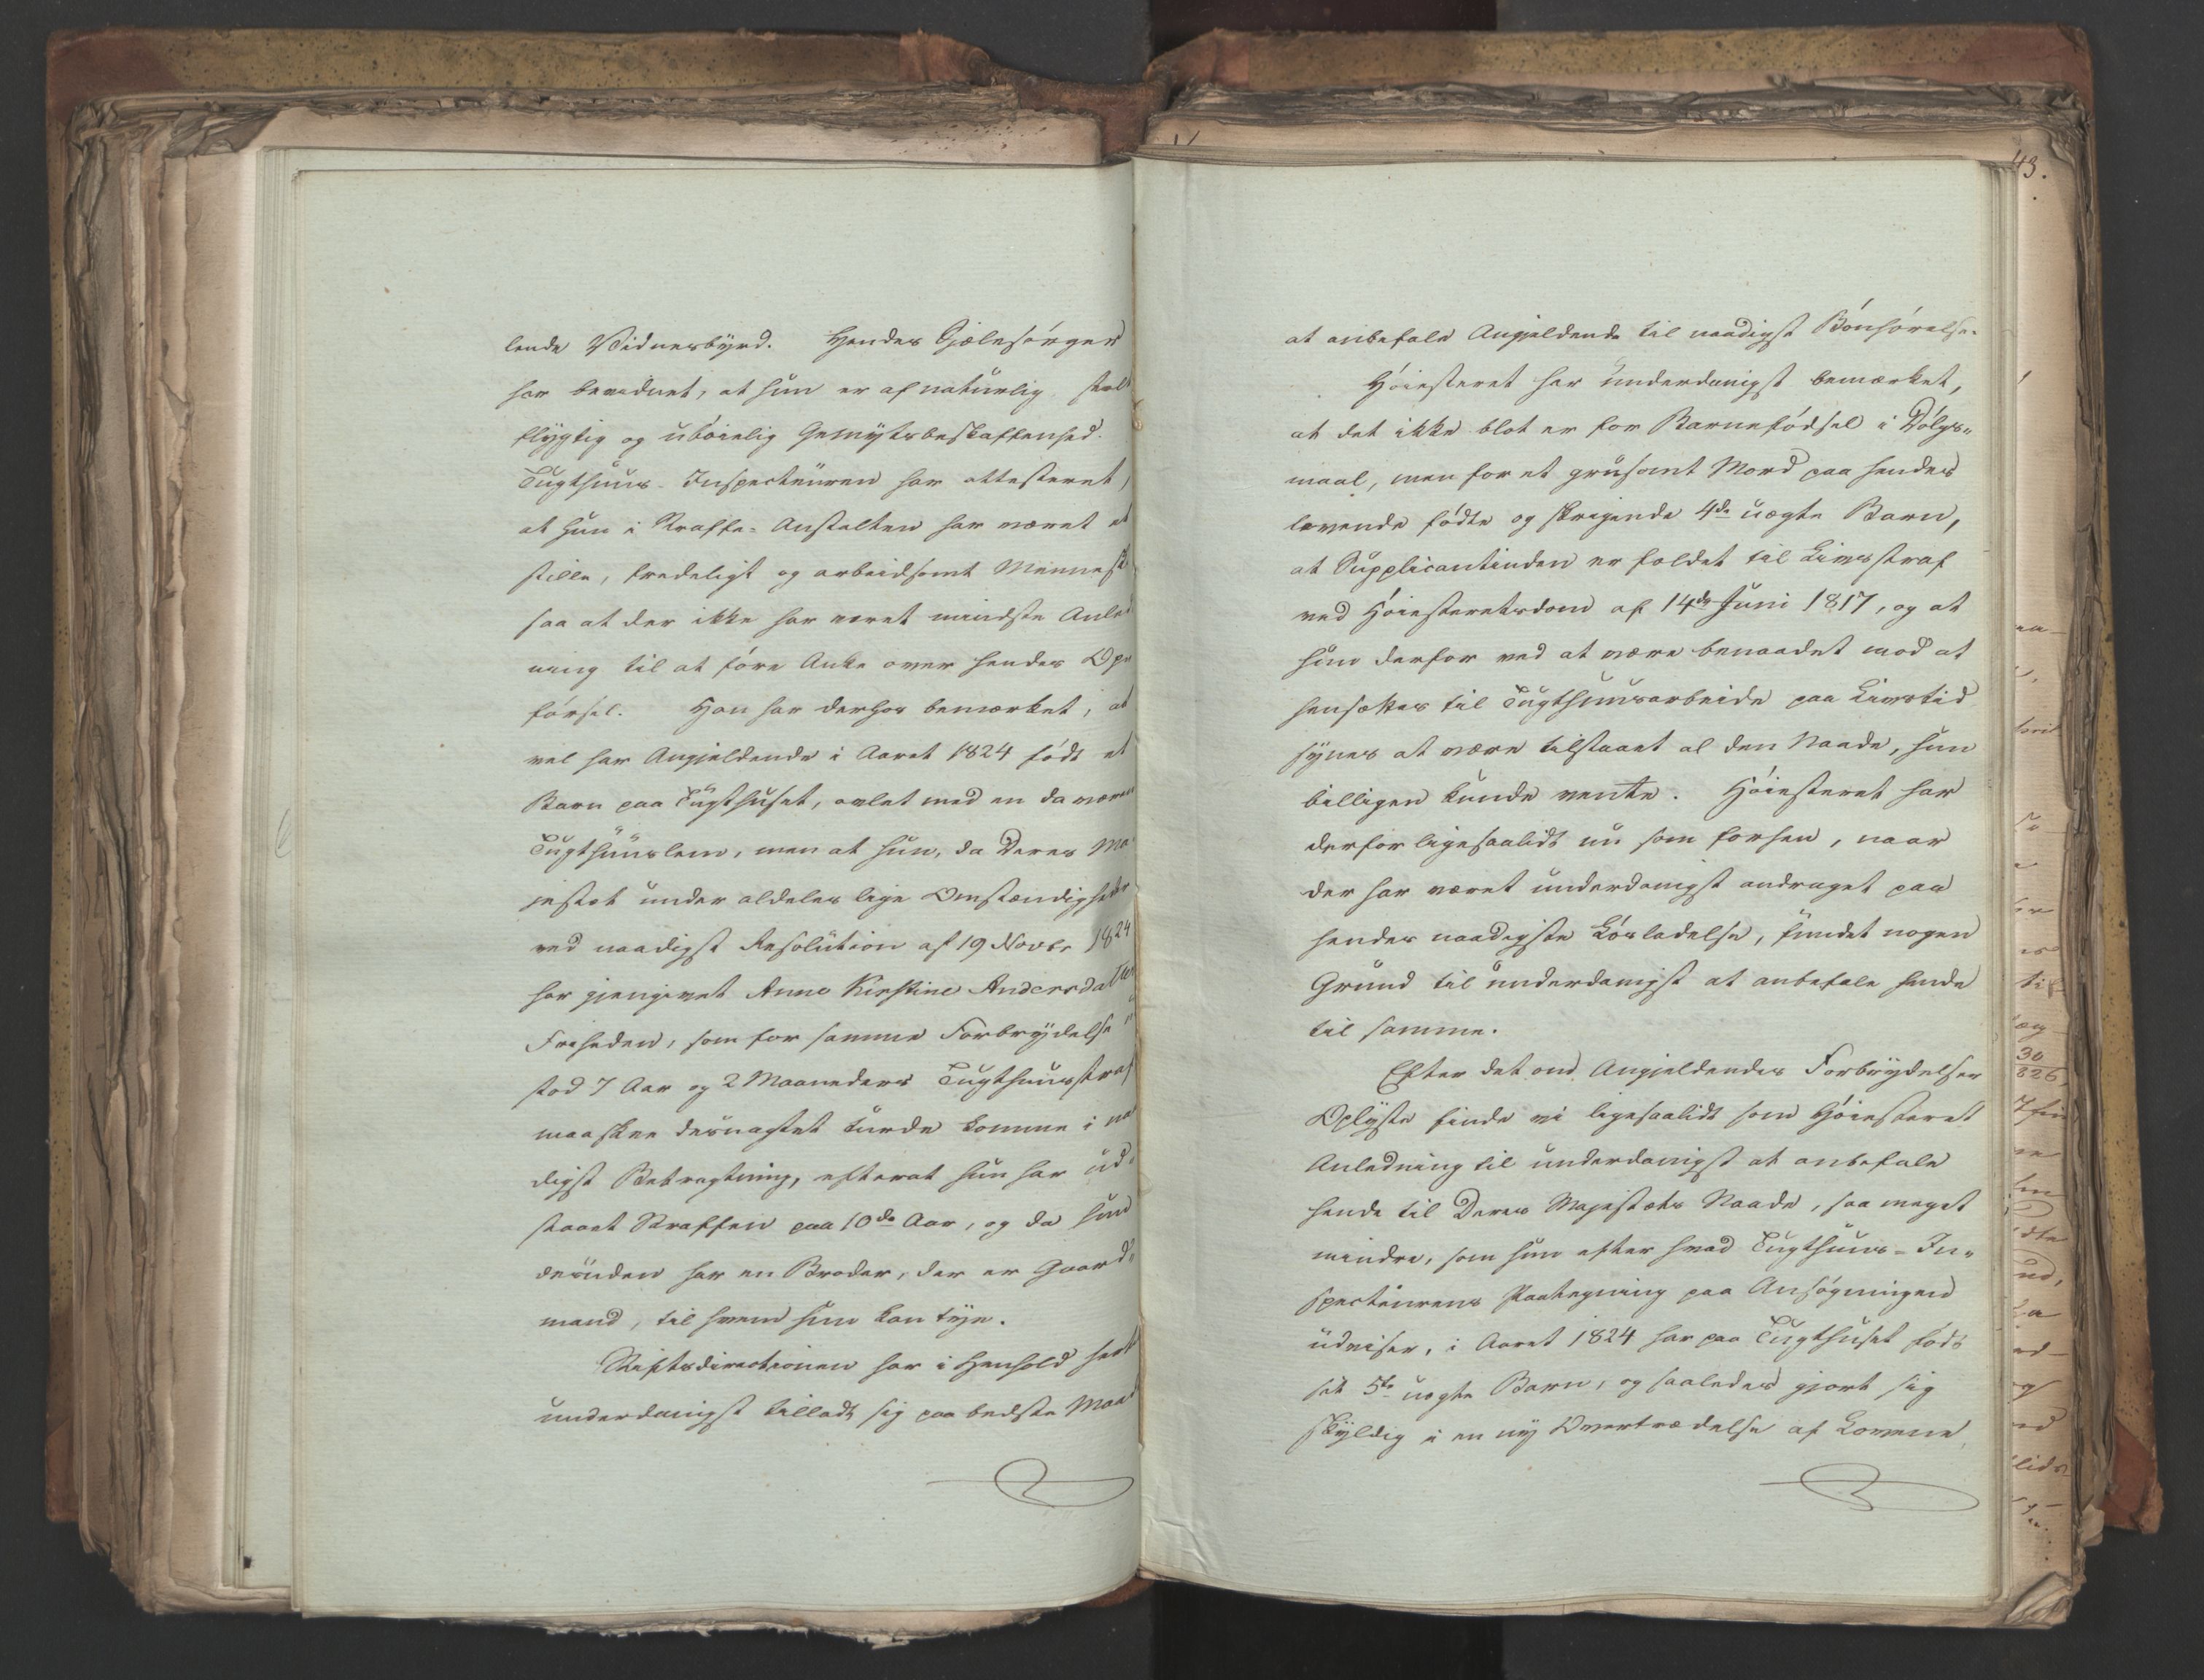 lende Vidnesbyrd. Hendes Sjælesørger
har bevidnet, at hun er af naturlig stolt
flygtig og ubøielig Gemytsbeskaffenhed.
Tugthuus-Inspecteuren har attesteret,
at hun i Straffe-Anstalten har været et
stille, fredeligt og arbeidsomt Mennesk
saa at der ikke har været mindste Anled
ning til at føre Anke over hendes Op
førsel. Han har derhos bemærket, at
vel har Angjeldende i Aaret 1824 født et
Barn paa Tugthuset, avlet med en da væren
Tugthuuslem, men at hun, da Deres Ma-
jestæt under aldeles lige Omstændigheder
ved naadigst Resolution af 19 Novbr 1824
har gjengivet Anne Kirstine Andersdatter
Friheden, som for samme Forbrydelse ud
stod 7 Aar og 2 Maaneders Tugthuusstraf
maaskee desuagtet turde komme i naa
digst Betragtning, efterat hun har ud-
staaet Straffen paa 10de Aar, og da hun
desuden har en Broder, der er Gaard-
mand, til hvem hun kan tye.
Stiftsdirectionen har i Henhold hertil
underdanigst tilladt sig paa bedste Maade
43.
at anbefale Angjeldende til naadigst Bønhørelse.
Høiesteret har underdanigst bemærket,
at det ikke blot er for Barnefødsel i Dølgs-
maal, men for et grusomt Mord paa hendes
levende fødte og skrigende 4de uægte Barn,
at Supplicantinden er fældet til Livsstraf
ved Høiesteretsdom af 14de Juni 1817, og at
hun derfor ved at være benaadet mod at
hensættes til Tugthuusarbeide paa Livstid
synes at være tilstaaet al den Naade, hun
billigen kunde vente. Høiesteret har
derfor ligesaalidt nu som forhen, naar
der har været underdanigst andraget paa
hendes naadigste Løsladelse, fundet nogen
Grund til underdanigst at anbefale hende
til samme.
Efter det om Angjeldendes Forbrydelser
Oplyste finde vi ligesaalidt som Høiesteret
Anledning til underdanigst at anbefale
hende til Deres Majestæts Naade, saa meget
mindre, som hun efter hvad Tugthuus-In-
specteurens Paategning paa Ansøgningen
udviser, i Aaret 1824 har paa Tugthuset født
sit 5te uægte Barn, og saaledes gjort sig
skyldig i en ny Overtrædelse af Lovene,